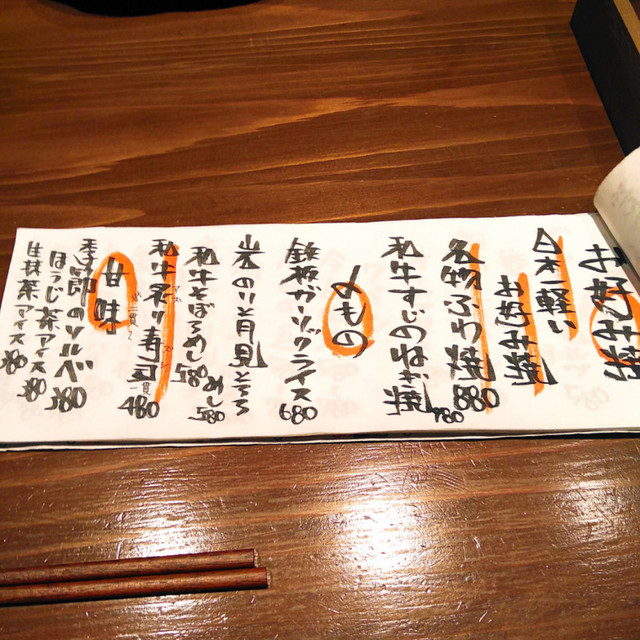 お好み焼
日本一軽い
お好み焼
名物ふわ焼 880
和牛すじのねぎ焼 980
〆もの
鉄板ガーリックライス 680
岩のりと月見とろろ
めし 580
和牛そぼろめし 580
和牛炙り寿司 480
甘味
季節のソルベ 380
ほうじ茶アイス 380
生抹茶アイス 380